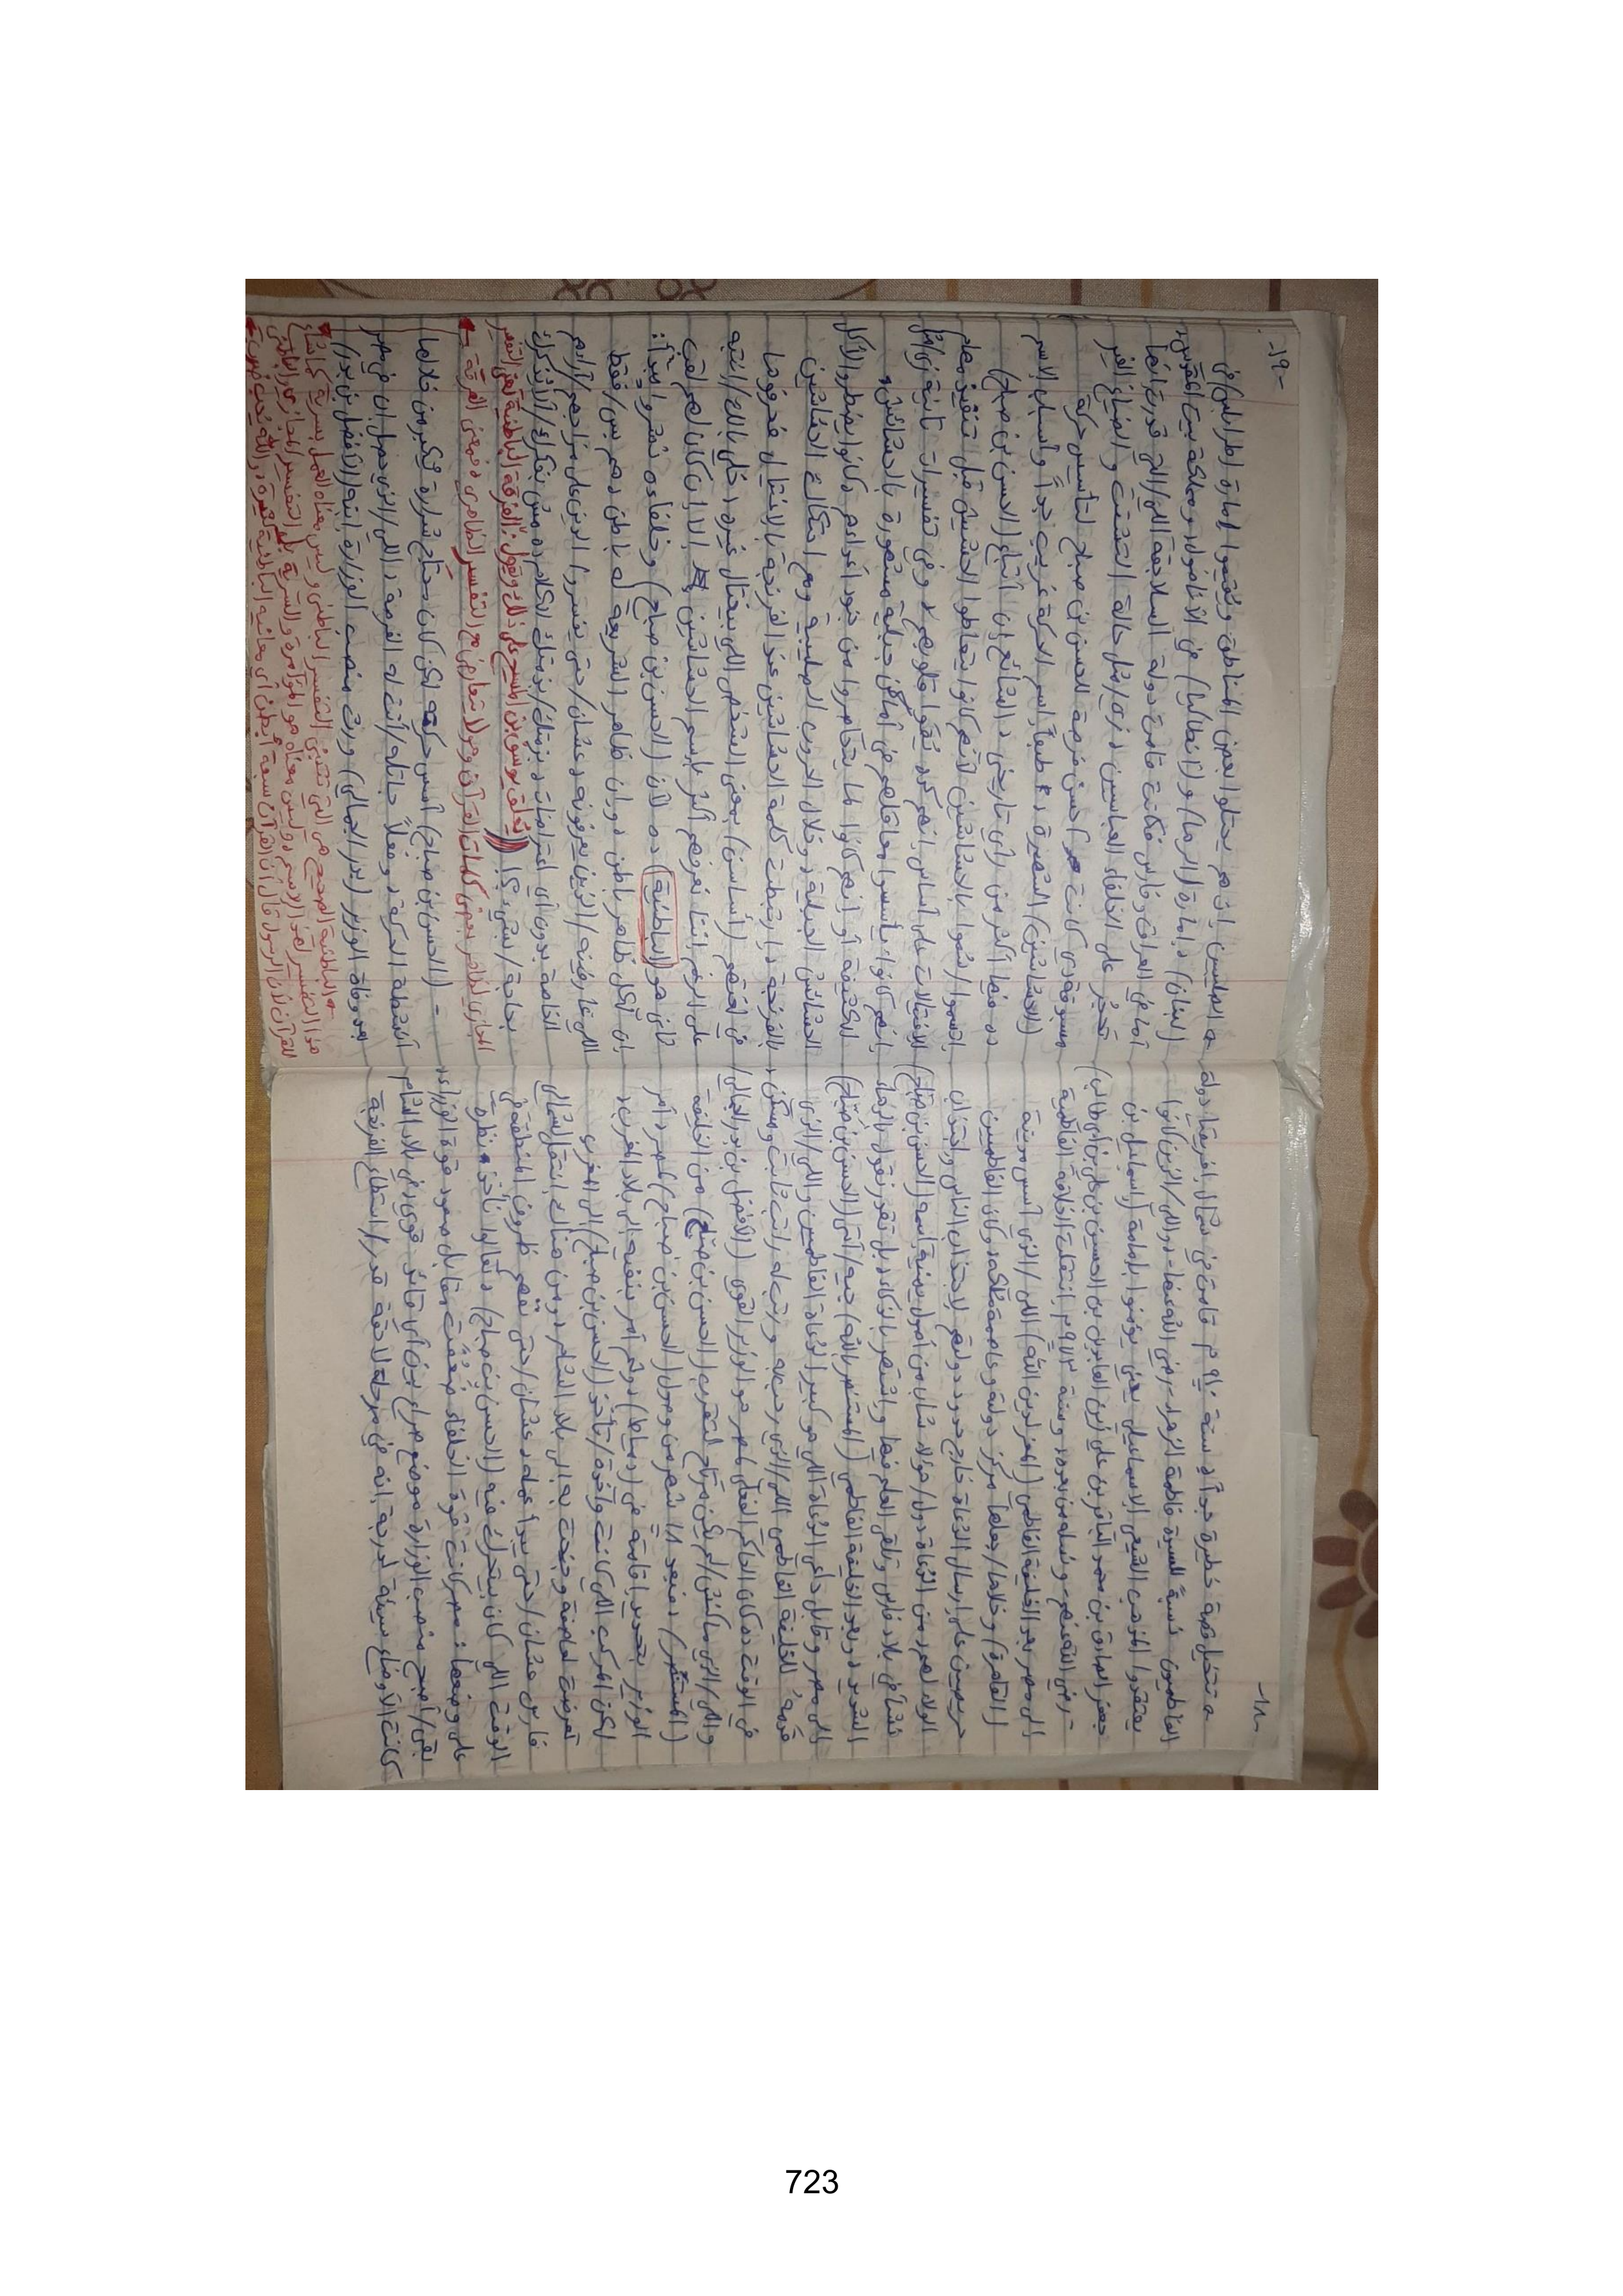 -١٨-
تتخيل قصة خطيرة جداً، سنة ٩٠٩م قامت في شمال إفريقيا دولة
الفاطميون نسبةً للسيدة فاطمة الزهراء - رضي الله عنها - واللي/الذين كانوا
يعتقدوا المذهب الشيعي الإسماعيلي يعني يؤمنوا بإمامة (إسماعيل بن
جعفر الصادق بن محمد الباقر بن علي زين العابدين بن الحسين بن علي بن أبي طالب)
- رضي الله عنهم - ونسله من بعده، وسنة ٩٧٣م إنتقلت الخلافة الفاطمية
إلى مصر بعد الخليفة الفاطمي (المعز لدين الله) اللي/الذي أسس مدينة
(القاهرة) وخلاها/جعلها مركز دولته وعاصمة ملكه، وكان الفاطميين
حريصين على إرسال الدعاة خارج حدود دولتهم لإجتذاب الناس وإجتذاب
الولاء لهم، من الدعاة دول/هؤلاء شاب من أصول يمنية اسمه (الحسن بن صباح)
نشأ في بلاد فارس وتلقى العلم فيها وإشتهر بالذكاء، بل نقدر نقول بالدهاء
الشديد، وبعد الخليفة الفاطمي (المستنصر بالله) جيه/أتى (الحسن بن صباح)
إلى مصر وقابل داعي الدعاة اللي هو كبير الدعاة الفاطميين واللي/الذي
قدمه للخليفة الفاطمي اللي/الذي رحب به ورتب له راتب ثابت ومسكن،
في الوقت ده كان الحاكم الفعلي لمصر هو الوزير القوي (الأفضل بن بدر الجمالي)
واللي/الذي ماكنش/لم يكن مرتاح لتقرب (الحسن بن صباح) من الخليفة
(المستنصر)، فبعد ١٨ شهر من وصول (الحسن بن صباح) لمصر، أمر
الوزير بتحديد إقامته في (دمياط)، وثم أمر بنفيه إلى بلاد المغرب،
لكن المركب اللي كانت واخدة/تأخذ (الحسن بن صباح) إلى المغرب
تعرضت لعاصفة وجنحت به إلى بلاد الشام، ومن هناك إنتقل لشمالي
فارس عشان/حتى يبدأ عمله، عشان/حتى نفهم ظروف المنطقة في
الوقت اللي كان بيتحرك فيه (الحسن بن صباح)، تعالوا نأخذ نظرة
على وضعها: مصر كانت قوة الخلفاء ضعفت مقابل صعود قوة الوزراء،
بقى/أصبح منصب الوزارة موضع صراع بين أي قائد قوي، في بلاد الشام
كانت الأوضاع سيئة لدرجة إنه في مرحلة لاحقة قدر/استطاع الفرنجة
-١٩-
الصليبيين إنهم يحتلوا بعض المناطق ويقيموا إمارة (طرابلس/في
لبنان)، إمارة (الرها) و(أنطاكيا) في الأناضول، ومملكة بيت المقدس،
أما في العراق وفارس فكانت قامت دولة السلاجقة اللي/التي قدرت إنها
تحجِّر على الخلفاء العباسيين، زي/مثل حالة التفتت والضياع الغير
مسبوقة دي كانت أحسن فرصة للحسن بن صباح لتأسيس حركته
(الحشاشين) الشهيرة، طبعاً إسم الحركة غريب جداً وأسباب الإسم
ده فيها أكثر من رأي تاريخي، الشائع إن أتباع (الحسن بن صباح)
إتسموا/سُمُّوا بالحشاشين لأنهم كانوا يتعاطوا الحشيش قبل تنفيذ مهام
الإغتيالات على أساس إنهم كده يُقوا قلوبهم، وفي تفسيرات تانية زي/مثل
إنهم كانوا يأسسوا معاقلهم في أماكن جبلية مشهورة بالحشائش
الكثيفة أو إنهم كانوا لما يتحاصروا من جنود أعدائهم، كانوا يضطروا لأكل
الحشائش الجبلية، وخلال الحروب الصليبية ومع إحتكاك الحشاشين
بالفرنجة، إرتبطت كلمة الحشاشين عند الفرنجة بالإغتيال فحرفوها
في لغتهم (أساسن) بمعنى الشخص اللي بيغتال غيره، خلي بالك/إنتبه
على الرغم إننا نعرفهم أكثر بإسم الحشاشين إلا إن كان لهم لقب
تاني هو (الباطنية)، ده لأن (الحسن بن صباح) وخلفاءه نشروا مبدأ:
إن لكل ظاهر باطن، وإن ظاهر الشريعة له باطن، هم بس/فقط
اللي عارفينه/الذين يعرفونه، عشان/حتى يفسروا الدين على مزاجهم/آرائهم
الخاصة بدون أي إعتراضات، بذمتك الكلام ده مش بيفكرك/ألا يُذكرك
بحاجة/بشيء؟! (يُعلق يوسف بن المسيح على ذلك ويقول: الفرقة الباطنية تعني التفسير
المجازي لظاهر بعض كلمات القرآن ولا تتعارض مع التفسير الظاهري، فمعنى الفرقة
الباطنية الصحيح هي التي تتبنى التفسير الباطني وليس معناه العمل بسرية كما شاع
هذا التفسير لهذا الإسم، وليس معناه هو المؤامرة والسرية بل هو التفسير المجازي والباطني
للقرآن لأن الرسول قال أن القرآن سبعة أبطن أي معانيه الباطنية كثيرة،
- (الحسن بن صباح) أسس حركته لكن كان محتاج شرارة يكبر من خلالها
أنشطة الحركة، وفعلاً جاتله/أتت له الفرصة، اللي/الذي حصل إن في مصر
بعد وفاة الوزير (بدر الجمالي) ورث منصب الوزارة إبنه (الأفضل بن بدر)
723